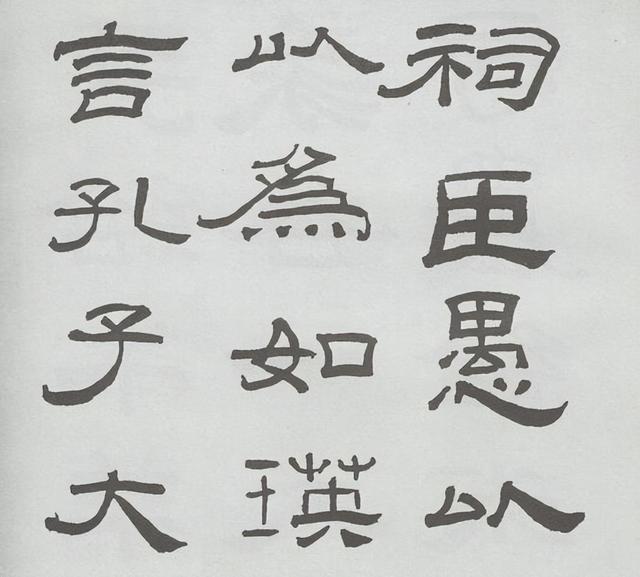 祠臣愚以
以為如瑛
言孔子大